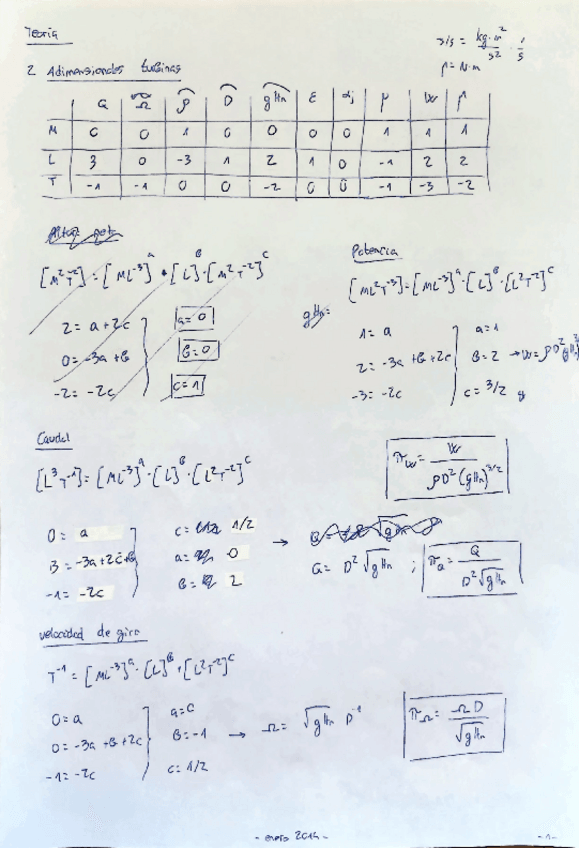 Teoría
J/s = kg·m²/s² · 1/s
P = N·m
2 Adimensionales turbinas
Q Ω ρ D gHn ε αj μ W P
M 0 0 1 0 0 0 0 1 1 1
L 3 0 -3 1 2 1 0 -1 2 2
T -1 -1 0 0 -2 0 0 -1 -3 -2
[M²T⁻²] = [ML⁻³]ᵃ · [L]ᴮ · [M²T⁻²]ᶜ
2 = a + 2c
a = 0
0 = -3a + B
B = 0
-2 = -2c
c = 1
Potencia
[ML²T⁻³] = [ML⁻³]ᵃ · [L]ᴮ · [L²T⁻²]ᶜ
gHn =
1 = a
a = 1
2 = -3a + B + 2c
B = 2 → W = ρD²(gHn)^3/2
-3 = -2c
c = 3/2
πw = W / ρD²(gHn)^3/2
Caudal
[L³T⁻¹] = [ML⁻³]ᵃ · [L]ᴮ · [L²T⁻²]ᶜ
0 = a
c = 1/2
3 = -3a + 2c + B
a = 0
-1 = -2c
B = 2
→ Q = D² √gHn ; πQ = Q / D²√gHn
velocidad de giro
T⁻¹ = [ML⁻³]ᵃ · [L]ᴮ · [L²T⁻²]ᶜ
0 = a
a = 0
0 = -3a + B + 2c
B = -1
-1 = -2c
c = 1/2
→ Ω = √gHn D⁻¹
πΩ = ΩD / √gHn
- enero 2014 -
- 1 -